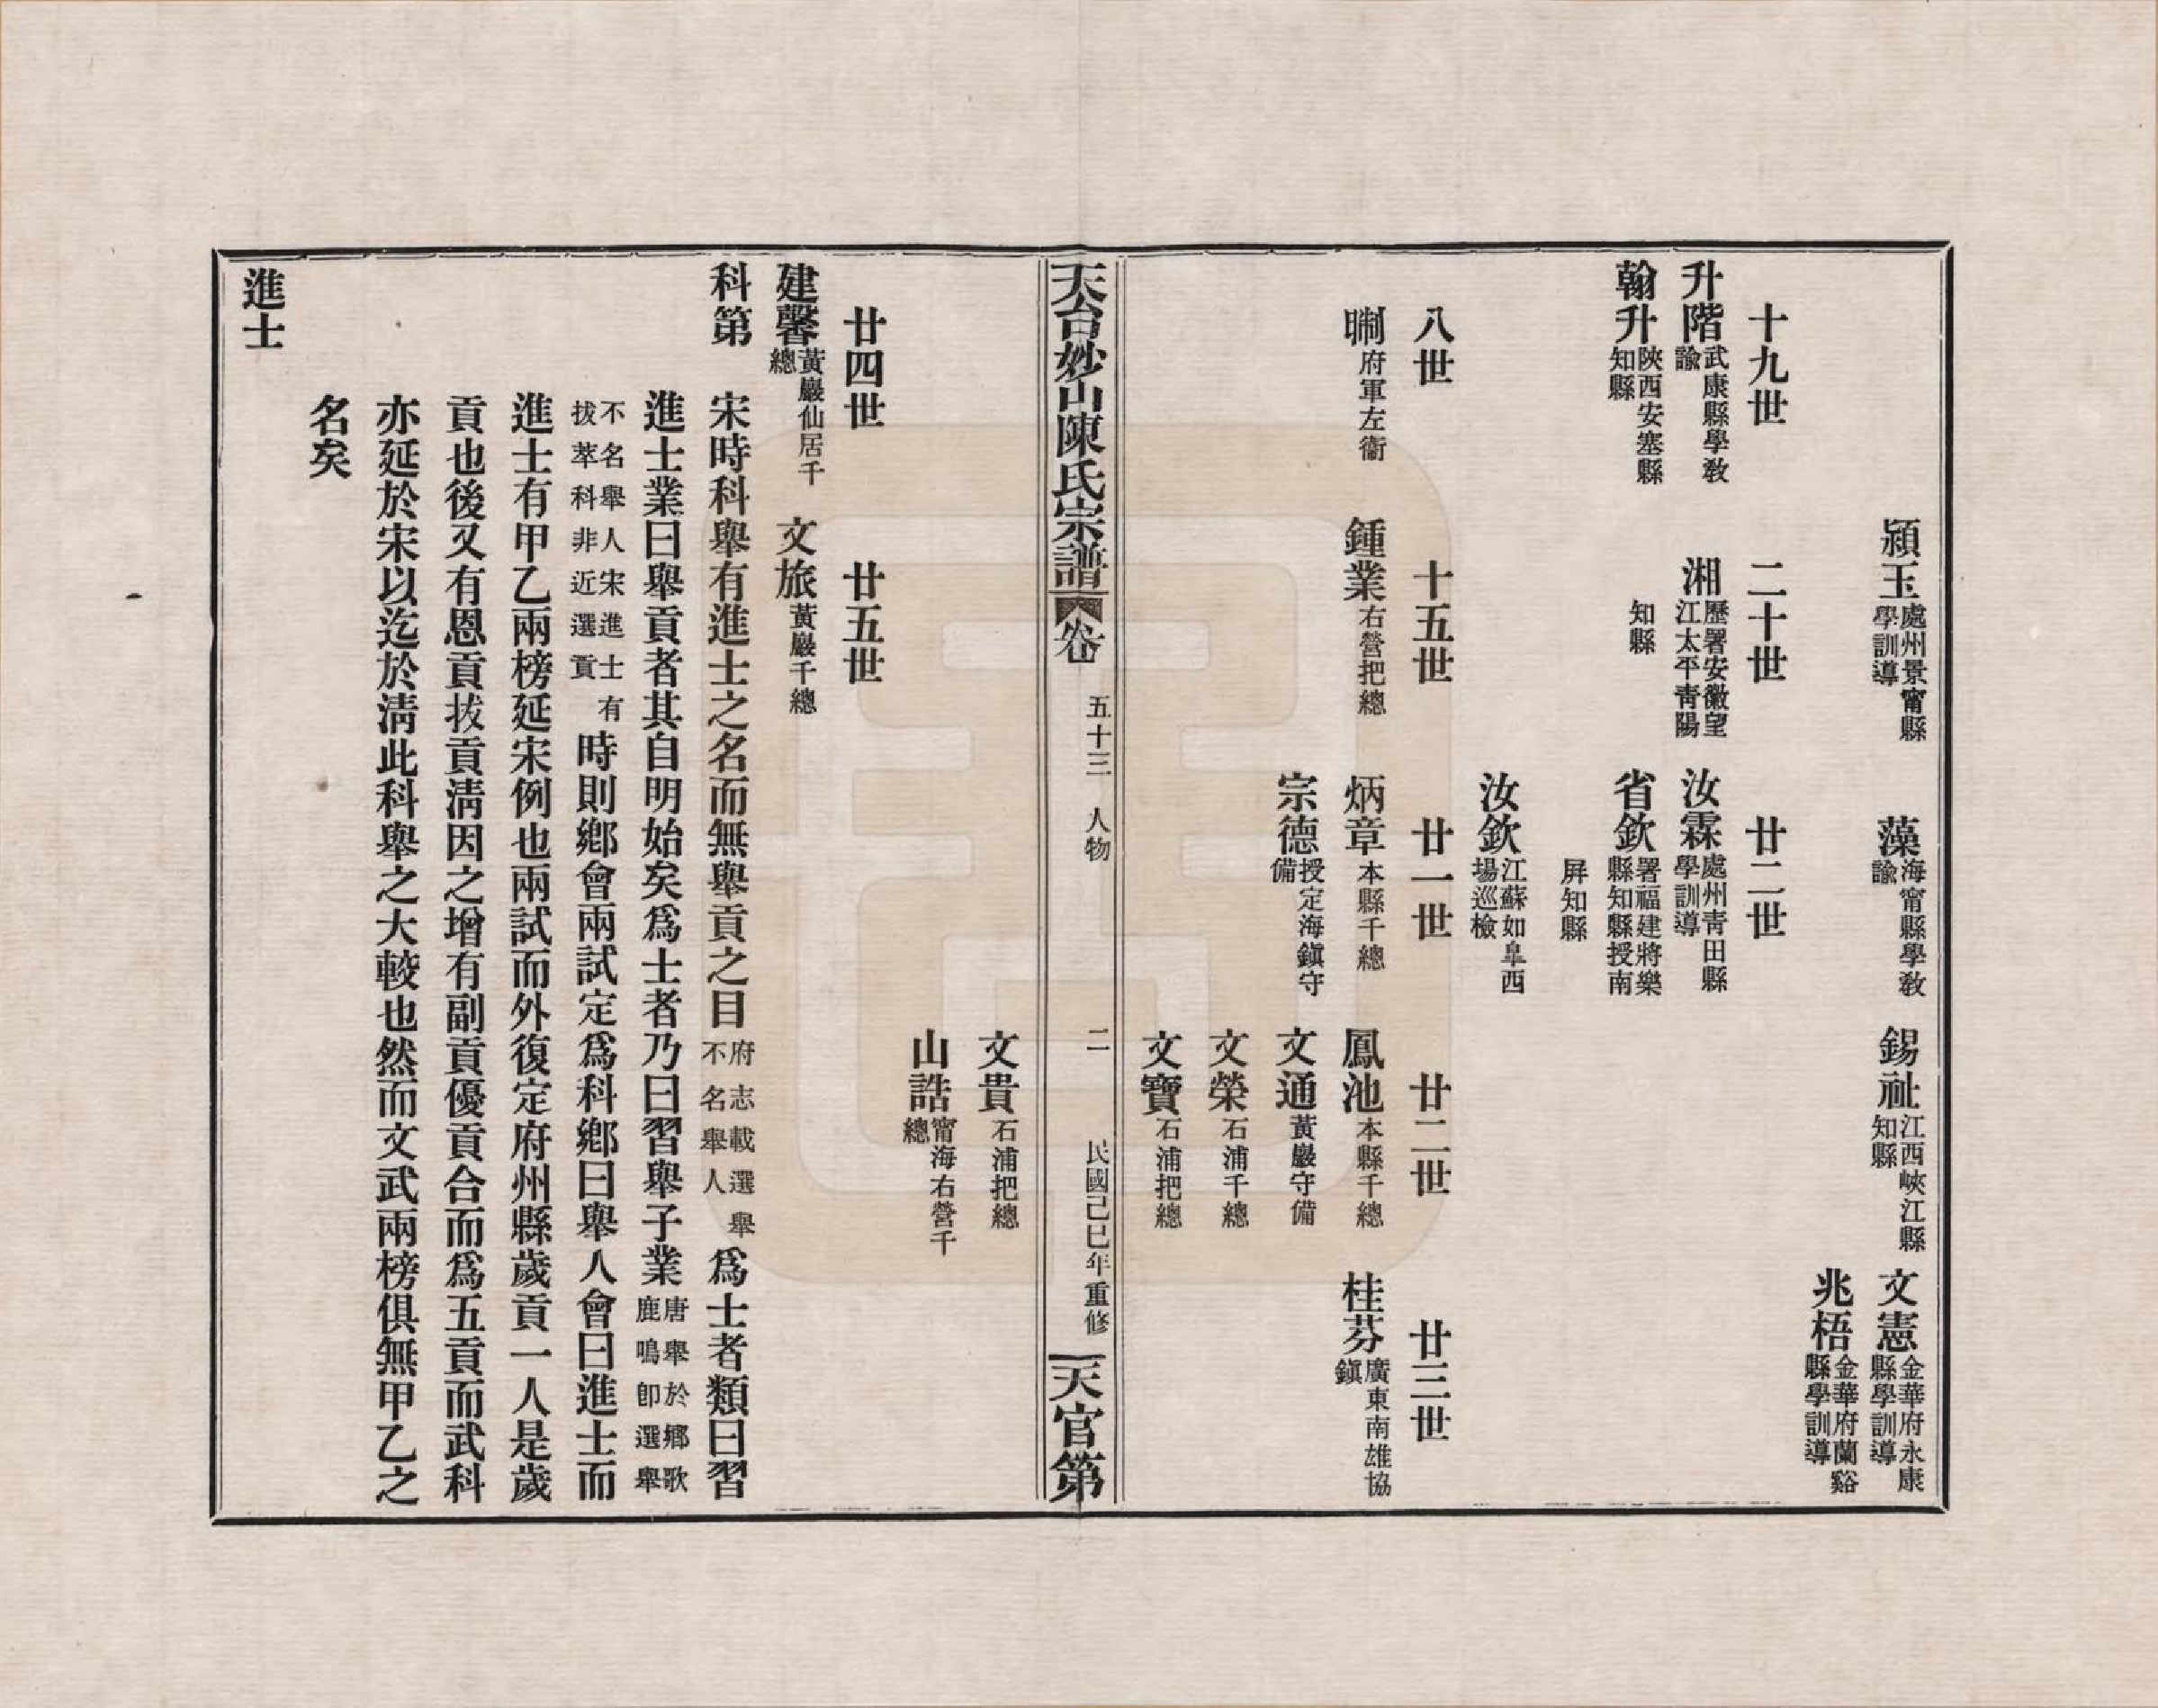 頴玉處州景甯縣學訓導　藻海甯縣學教諭　錫祉江西峽江縣知縣　文憲金華府永康縣學訓導
兆梧金華府蘭谿縣學訓導
十九世　二十世　廿二世
升階武康縣學教諭　湘歷署安徽望江太平青陽　汝霖處州青田縣學訓導
翰升陝西安塞縣知縣　知縣　省欽署福建將樂縣知縣授南
屏知縣
汝欽江蘇如臯西場巡檢
八世　十五世　廿一世　廿二世　廿三世
府軍左衞　鍾業右營把總　炳章本縣千總　鳳池本縣千總　桂芬廣東南雄協鎮
宗德授定海鎮守備　文通黃巖守備
文榮石浦千總
文寶石浦把總
天台妙山陳氏宗譜　卷　五十三　人物　二　民國己巳年重修　天官第
文貴石浦把總
山誥甯海右營千總
廿四世　廿五世
建馨黃巖仙居千總　文旅黃巖千總
科第　宋時科舉有進士之名而無舉貢之目府志載選舉不名舉人爲士者類曰習
進士業曰舉貢者其自明始矣爲士者乃曰習舉子業唐舉於鄉歌鹿鳴卽選舉
不名舉人宋進士有拔萃科非近選貢時則鄉會兩試定爲科鄉曰舉人會曰進士而
進士有甲乙兩榜延宋例也兩試而外復定府州縣歲貢一人是歲
貢也後又有恩貢拔貢淸因之增有副貢優貢合而爲五貢而武科
亦延於宋以迄於淸此科舉之大較也然而文武兩榜俱無甲乙之
名矣
進士